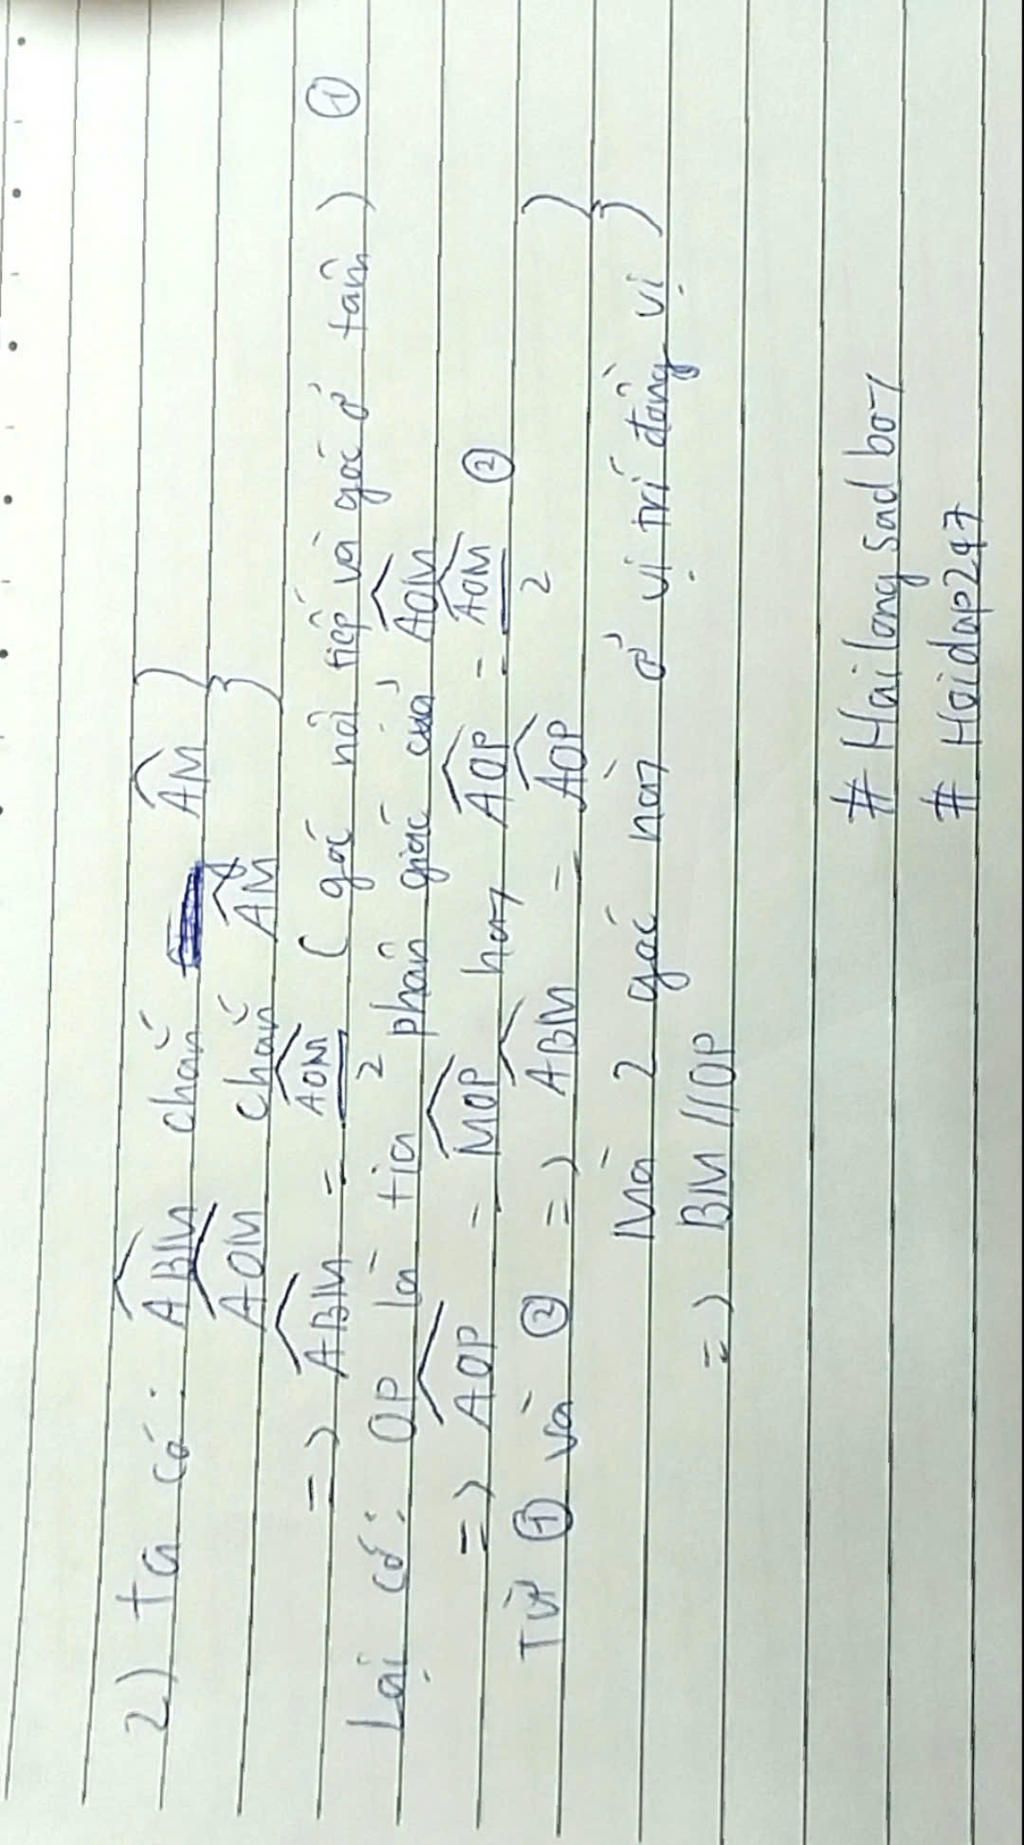 2) Ta có: \widehat{ABM} chắn \overset{\frown}{AM} }
\widehat{AOM} chắn \overset{\frown}{AM} }
=> \widehat{ABM} = \frac{\widehat{AOM}}{2} (góc nội tiếp và góc ở tâm) ①
Lại có: OP là tia phân giác của \widehat{AOM}
=> \widehat{AOP} = \widehat{MOP} hay \widehat{AOP} = \frac{\widehat{AOM}}{2} ②
Từ ① và ② => \widehat{ABM} = \widehat{AOP} }
Mà 2 góc này ở vị trí đồng vị }
=> BM // OP
# Hailongsadboy
# Hoidap247